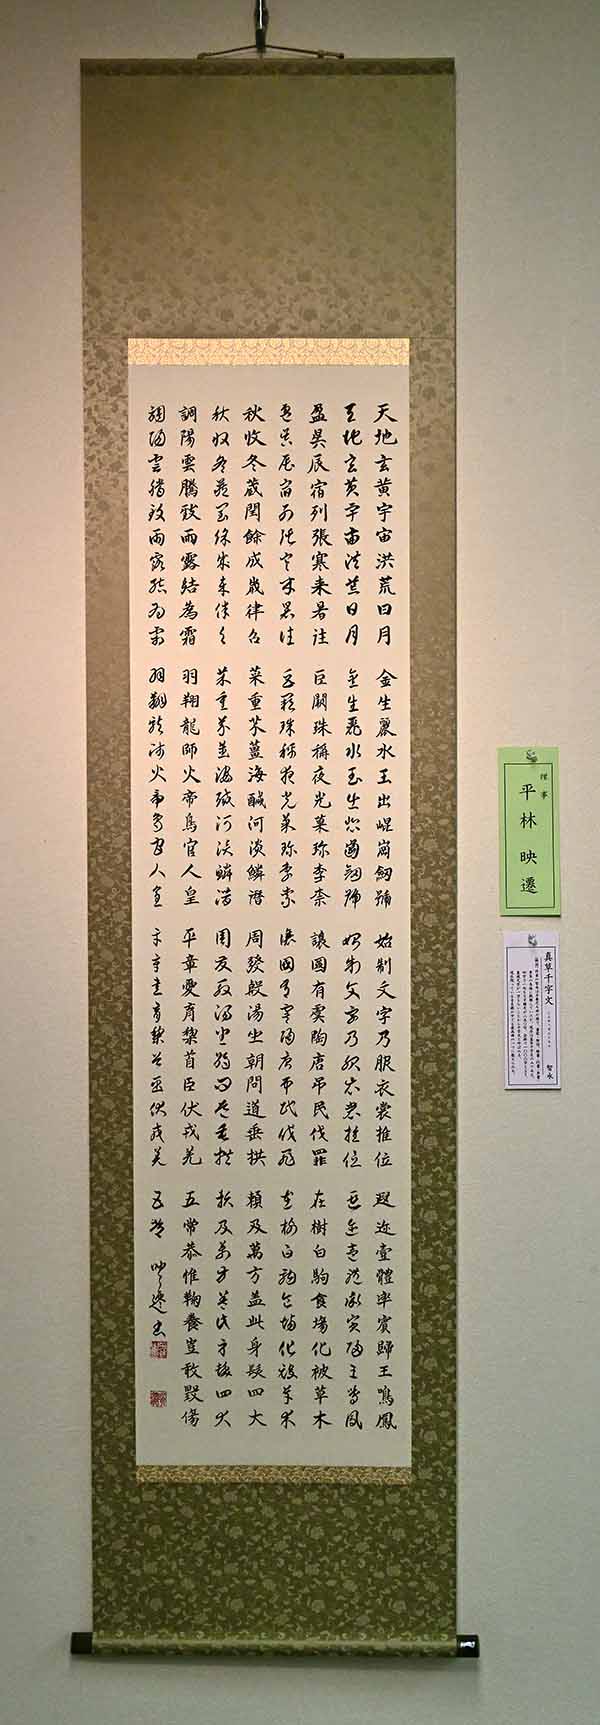 天地玄黄宇宙洪荒日月
天地玄黄宇宙洪荒日月
盈昃辰宿列張寒来暑往
盈昃辰宿列張寒来暑往
秋收冬蔵閏餘成歳律召
秋收冬蔵閏餘成歳律召
調陽雲騰致雨露結為霜
調陽雲騰致雨露結為霜
金生麗水玉出崐崗劒號
金生麗水玉出崐崗劒號
巨闕珠稱夜光菓珍李柰
巨闕珠稱夜光菓珍李柰
菜重芥薑海醎河淡鱗潜
菜重芥薑海醎河淡鱗潜
羽翔龍師火帝鳥官人皇
羽翔龍師火帝鳥官人皇
始制文字乃服衣裳推位
始制文字乃服衣裳推位
讓國有虞陶唐弔民伐罪
讓國有虞陶唐弔民伐罪
周發殷湯坐朝問道垂拱
周發殷湯坐朝問道垂拱
平章愛育黎首臣伏戎羌
平章愛育黎首臣伏戎羌
遐迩壹體率賓歸王鳴鳳
遐迩壹體率賓歸王鳴鳳
在樹白駒食場化被草木
在樹白駒食場化被草木
頼及萬方盖此身髮四大
頼及萬方盖此身髮四大
五常恭惟鞠養豈敢毀傷
五常 映遷書
理事
平林 映遷
真草千字文
智永